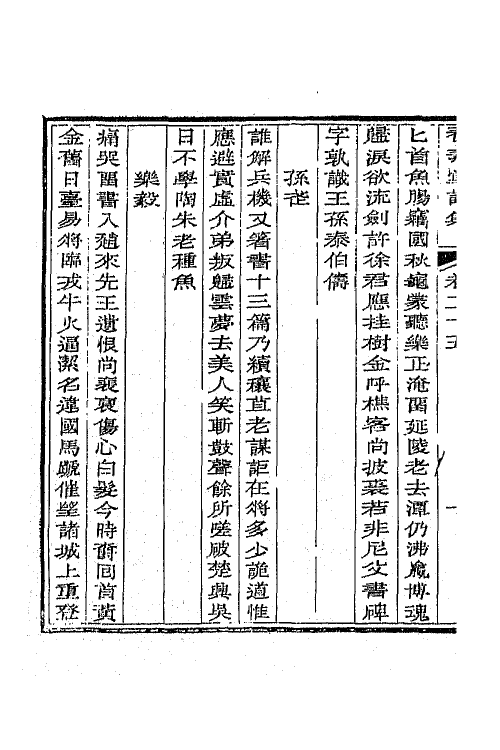 卷二十五
匕首魚腸竊國秋龜衆聽樂正淹留延陵老去潭仍沸嬴博魂
歸淚欲流劍許徐君應挂樹金呼樵客尚披裘若非尼父書碑
字孰識王孫泰伯儔
孫武
誰解兵機又著書十三篇乃續穰苴老謀詎在將多少詭道惟
應避實虛介弟叛歸雲夢去美人笑斬鼓聲餘所嗟破楚興吳
日不學陶朱老種魚
樂毅
痛哭留書入趙來先王遺恨尚裵褱傷心白髮今時奮回首黃
金舊日臺易將臨戎牛火逼潔名違國馬蹏催望諸城上重登